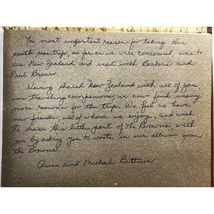 The most important reason for taking this
south sea trip, as far as we were concerned, was to
see New Zealand and visit with Barbara and
Paul Brown.
Having shared New Zealand with all of you,
our traveling companions, we now find many
more reasons for this trip. We feel we have
new friends, all of whom we enjoy, and wish
to share this little part of the Browns with
you by asking you to write in our album from
the Browns.
Anne and Michael